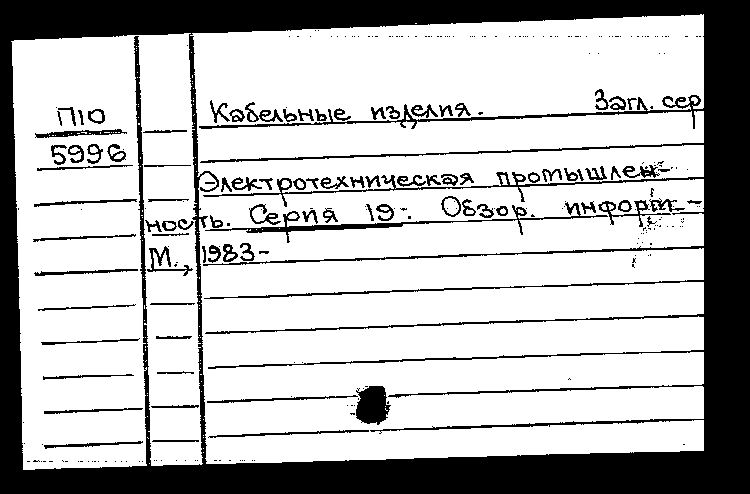 П10 Кабельные изделия. Загл. сер
5996
Электротехническая промышлен-
ность. Серия 19: Обзор. информ. -
М., 1983-